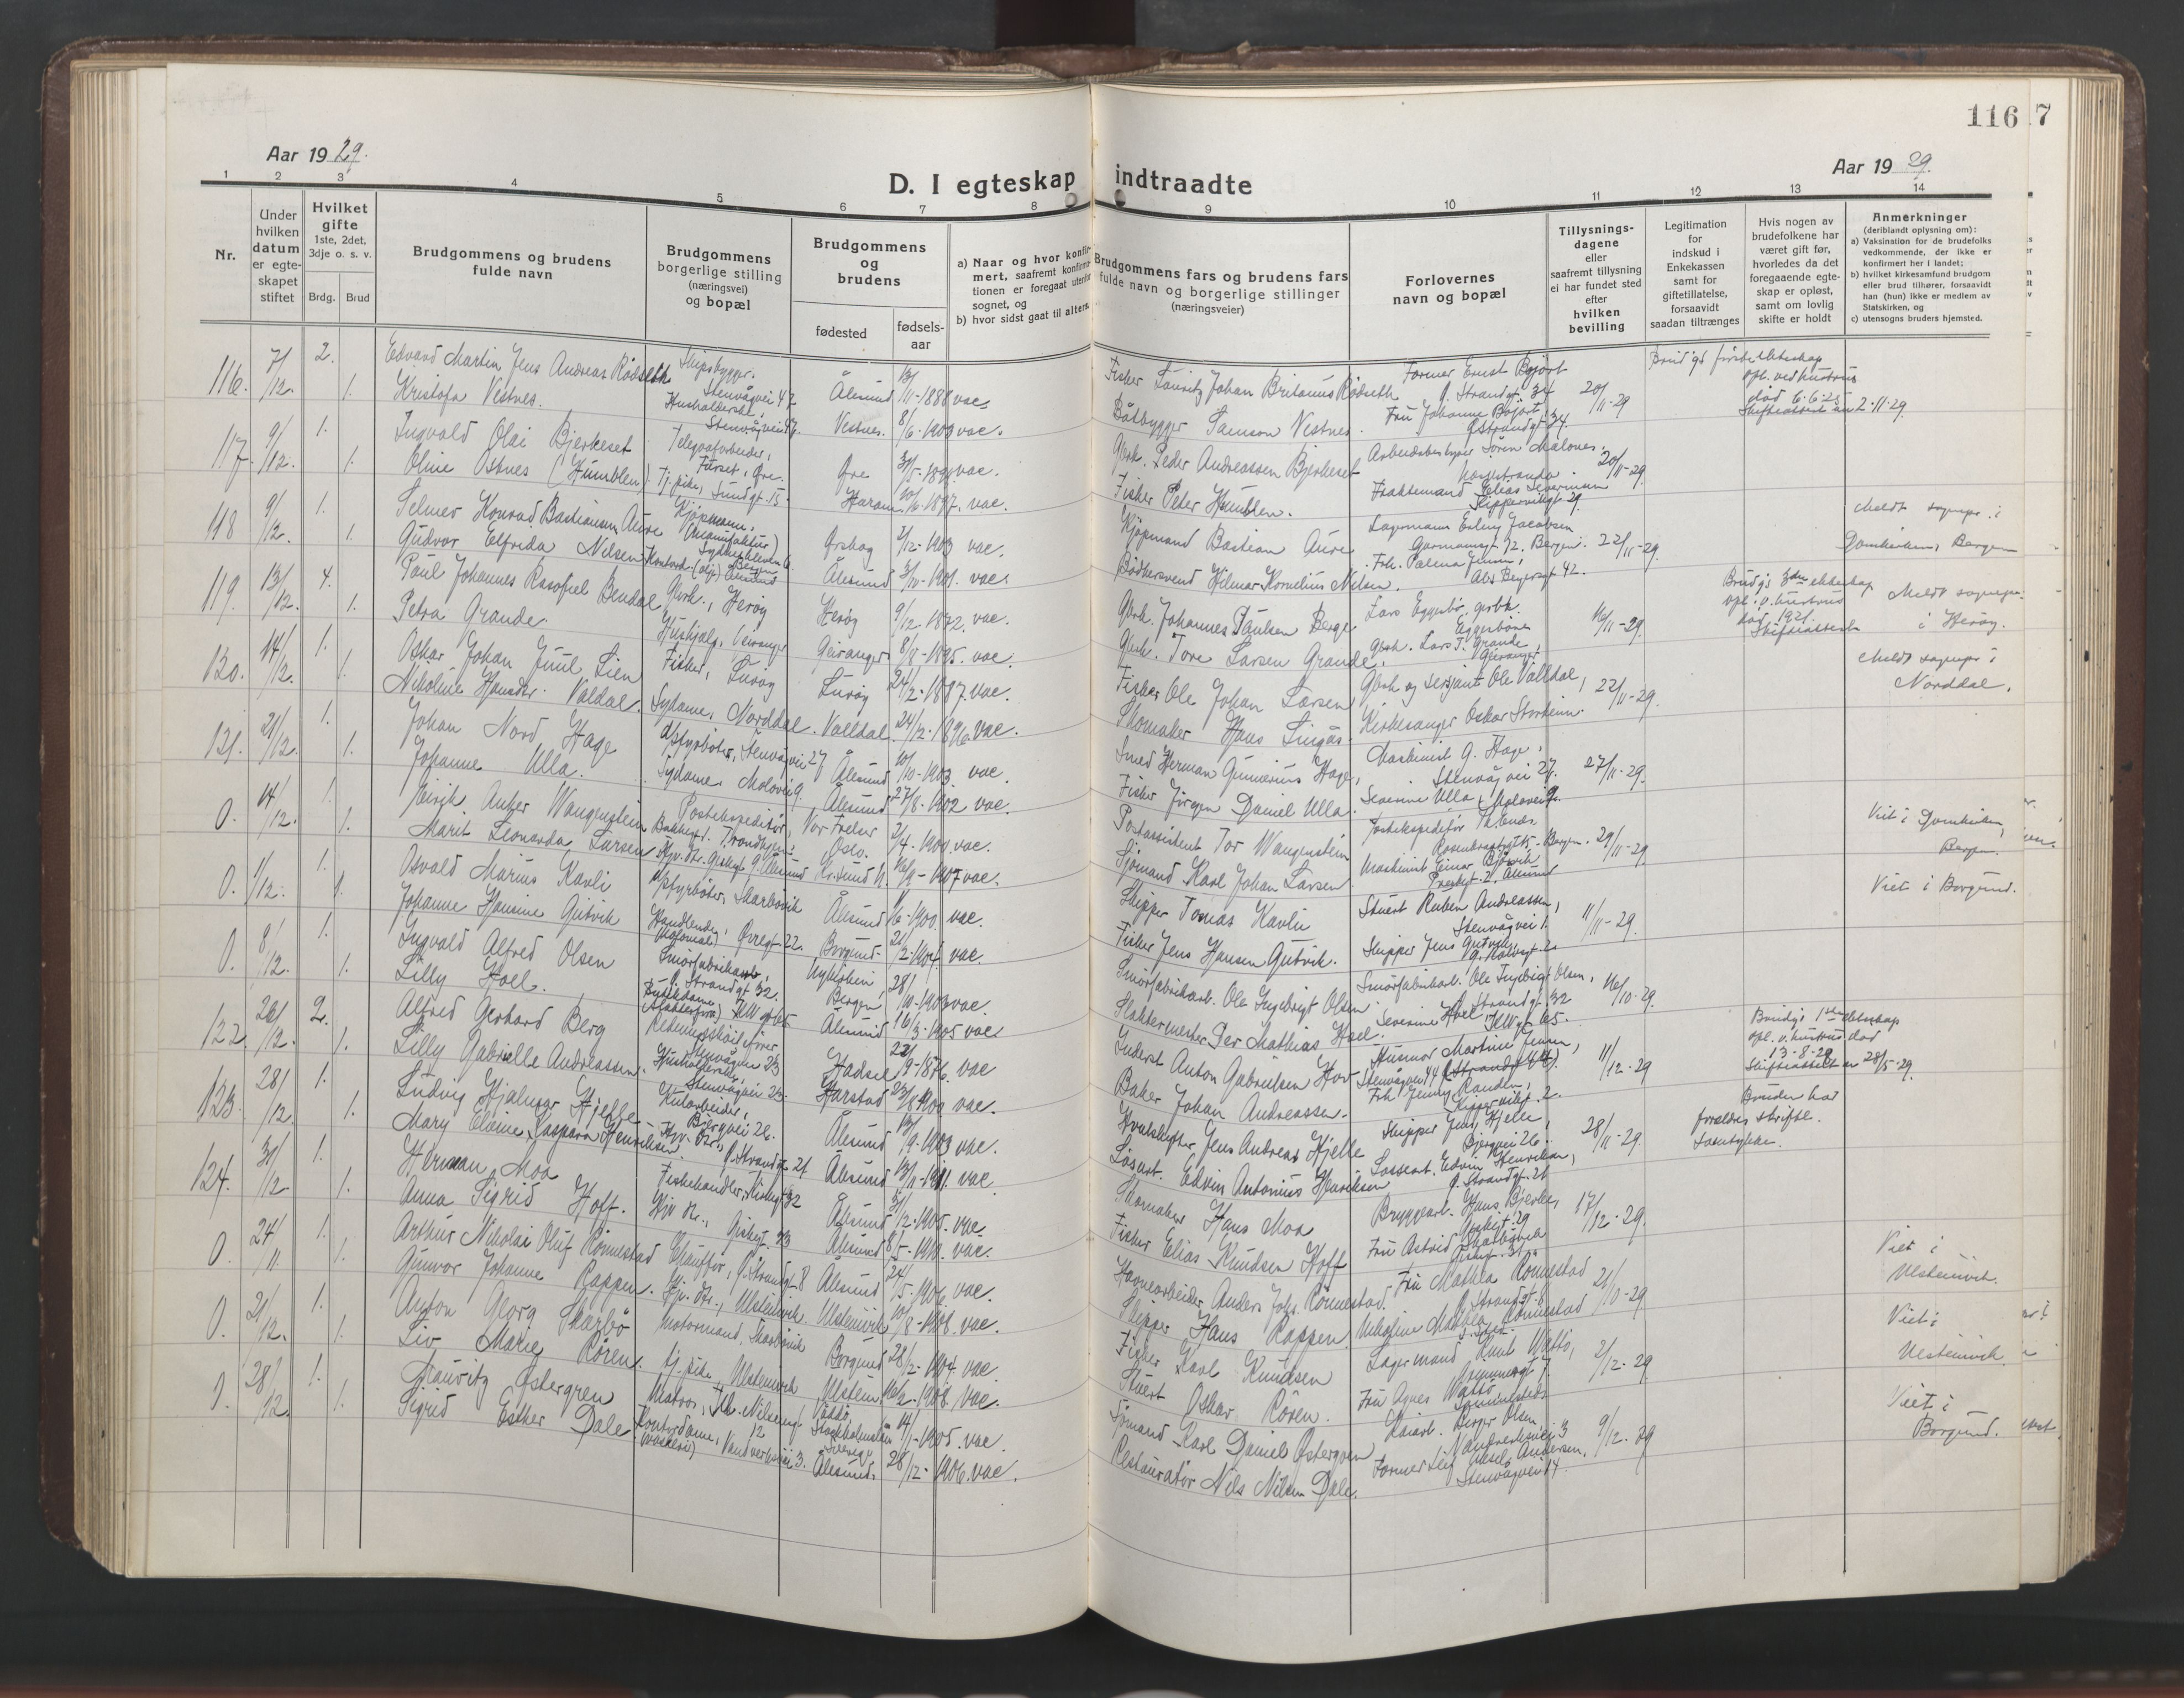 116
7
Aar 1929.
Aar 1929.
D. I egteskap indtraadte
1 2 3 4 5 6 7 8 9 10 11 12 13 14
Nr.
Under hvilken datum er egteskapet stiftet
Hvilket gifte 1ste, 2det, 3dje o. s. v.
Brdg. Brud
Brudgommens og brudens fulde navn
Brudgommens borgerlige stilling (næringsvei) og bopæl
Brudgommens og brudens
fødested
fødselsaar
a) Naar og hvor konfirmert, saafremt konfirmationen er foregaat utenfor sognet, og
b) hvor sidst gaat til alters.
Brudgommens fars og brudens fars fulde navn og borgerlige stillinger (næringsveier)
Forlovernes navn og bopæl
Tillysningsdagene eller saafremt tillysning ei har fundet sted efter hvilken bevilling
Legitimation for indskud i Enkekassen samt for giftetillatelse, forsaavidt saadan tiltrænges
Hvis nogen av brudefolkene har været gift før, hvorledes da det foregaaende egteskap er opløst, samt om lovlig skifte er holdt
Anmerkninger (deriblandt oplysning om):
a) Vaksination for de brudefolks vedkommende, der ikke er konfirmert her i landet;
b) hvilket kirkesamfund brudgom eller brud tilhører, forsaavidt han (hun) ikke er medlem av Statskirken, og
c) utensogns bruders hjemsted.
116. 7/12. 2. Edvard Martin Jens Andreas Rødseth Skipsbygger, Stenvågvei 47 Ålesund 13/11-1888 vac. Fisker Lauritz Johan Britanus Rødseth Former Ernst Bojört Ø. Strandgt. 34 20/11-29
1. Kristofa Vestnes. Husholderske, Stenvågvei 47. Vestnes. 8/6-1903 vac. Båtbygger Samson Vestnes. Fru Johanne Bojört, Ø. Strandgt. 34.
død 6-6-25
Skifteattest av 2-11-29.
117. 9/12. 1. Ingvald Olai Bjerkeset Telegrafarbeider, Furset, Øre. Øre vac. Gbrk. Peder Andreassen Bjerkeset Arbeidsbestyrer Søren Malones, 20/11-29.
1. Oline Osknes (Humblen). Tj. pike, Sundgt. 15. Haram. 10/6-1897. vac. Fisker Peter Humblen. Fraktemand Elias Severinsen Skippervikgt. 29.
118 9/12. 1. Selmer Konrad Bastiansen Aure Kjøpmann, (Manufaktur) Bergen Ørskog /12-1903 vac. Kjøpmand Bastian Aure Lagermann Erling Jacobsen Bergen. 22/11-29.
1. Gudvor Elfrida Nilsen Ålesund 3/10-1901. vac. Bødkersvend Hilmar Kornelius Nilsen. Frk. Palma Jensen,
Meldt sognepr. i Domkirken, Bergen
119. 13/12. 4. Paul Johannes Rasofiel Bendal Gbrk., Herøy Herøy 9/12-1872. vac. Gbrk. Johannes Paulsen Berge Lars Eggesbø, gbrk. Eggesbønes 16/11-29.
1. Petra Grande. Hushjelp, Geiranger Geiranger 8/8-1895. vac. Gbrk. Tore Larsen Grande. Gbrk. Lars T. Grande, Geiranger
død 1921. Skifteattest
Meldt sognepr. i Herøy.
120. 14/12. 1. Oskar Johan Juul Lien Fisker, Lurøy Lurøy 24/2-1887. vac. Fisker Ole Johan Larsen Gbrk og sersjant Ole Valldal, 22/11-29.
1. Nikoline Valdal. Sydame, Norddal. Valldal. 24/12-1896. vac. Skomaker Hans Lingås. Kirkesanger Oskar Storheim.
Meldt sognepr. i Norddal.
121. 21/12. 1. Johan Nord Hage Opfyrböter, Stenvågvei 27 Ålesund 10/10-1903 vac. Smed Herman Gunnerius Hage, Maskinist G. Hage, Stenvåg vei 27. 27/11-29.
1. Johanne Ulla. Sydame, Molovei 9. Ålesund 27/8-1902 vac. Fisker Jørgen Daniel Ulla. Severine Ulla, Molovei 9.
0. 14/12. 1. Eirik Anker Wangenstein Postekspeditør, Trondhjem. Vor Frelser Oslo. 2/4-1900 vac. Postassistent Tor Wangenstein Postekspeditör Bergen. 29/11-29
1. Marit Leonarda Larsen Hjv. dtr. Giskegt. 9. Ålesund Kr.sund N. 16/9-1907 vac. Sjömand Karl Johan Larsen Maskinist Einar Björvik Prestegt. 2, Ålesund
Viet i Domkirken, Bergen.
0. 1/12. 1. Osvald Marius Kavli Opfyrböter, Skarbövik Ålesund /6-1900. vac. Skipper Tomas Kavli Stuert Ruben Andreassen, Stenvågvei 1. 11/11-29.
1. Johanne Hansine Gutvik Handlende, (Kolonial) Øvregt. 22. Borgund. 21/2-1904 vac. Fisker Jens Hansen Gutvik. Skipper Jens Gutvik,
Viet i Borgund.
0. 8/12. 1. Ingvald Alfred Olsen Smörfabrikant, Ø. Strandgt 32. Bergen 28/10-1903 vac. Smörfabrikarb. Ole Ingebrigt Olsen Smörfabrikarb. Ole Ingebrigt Olsen, Ø. Strandgt. 32 16/10-29.
1. Lilly Hoel. Butikdame Ålesund 16/3-1905 vac. Slaktermester Per Mathias Hoel. Severine Hoel
122. 26/12. 2. Alfred Gerhard Berg Redningsskøitefører Stenvågvei 23 Hadsel 22/9-1876. vac Inderst Anton Gabrielsen Hov Husmor Martine Jensen, Stenvågvei 44 11/12-29
1. Lilly Gabrielle Andreassen. Husholderske, Stenvågvei 23. Harstad 23/8-1900 vac. Baker Johan Andreassen. Frk. Jenny Randen, Skippervikgt. 2.
Brudgs 1ste ekteskap opl. v. hustrus död 13-8-28 Skifteattest av 28/5-29.
123. 28/12. 1. Ludvig Hjalmar Hjelle Kularbeider, Bjergvei 26. Ålesund /9-1903 vac. Jens Andreas Hjelle Skipper Jens Hjelle, Bjergvei 26. 28/11-29.
1. Mary Elvine Kaspara Henriksen. Hjv. dtr., Ø. Strandgt. 21 Ålesund 13/11-1911. vac. Løsarb. Edvin Antonius Henriksen Løssearb. Edvin Henriksen, Ø. Strandgt. 21
Bruden har foreldres skriftl. samtykke.
124. 31/12 1. Herman Moa Fiskehandler, Ålesund 31/12-1905. vac Skomaker Hans Moa Bryggearb. Hans Bjerke, 17/12-29.
1. Anna Sigrid Hoff. Hjv. dtr., Giskegt. 23 Ålesund 8/5-1910. vac. Fisker Elias Knudsen Hoff Fru Astrid Skarbövik
0. 24/11. 1. Arthur Nikolai Oluf Rönnestad Chauffør, Ø. Strandgt. 8 Ålesund 24/5-1906. vac. Havnearbeider Anders Johs. Rönnestad. Fru Mathea Rönnestad Ø. Strandgt. 8 21/10-29.
1. Gunvor Johanne Rappen. Hjv. dtr., Ulsteinvik. Ulsteinvik 10/8-1908. vac. Skipper Hans Rappen. Nikoline Mathea Rönnestad
Viet i Ulsteinvik.
0. 21/12. 1. Anton Georg Skarbö Motormand, Skarbövik Borgund 28/2-1904. vac. Fisker Karl Knudsen Lagermand Knut Wattö, 2/12-29
1. Liv Marie Røren. Tj. pike, Ulsteinvik Ulstein. 16/2-1908. vac. Stuert Oskar Røren. Fru Agnes Wattö
Viet i Ulsteinvik.
0. 28/12. 1. Mauritz Østergren Matros, Väddö, Stockholmslän Sverige 14/1-1905. vac. Sjömand Karl Daniel Østergren Kaiarb. Birger Olsen, Vandverksvei 3 9/12-29
1. Sigrid Esther Dale. Kontordame, Vandverksvei 3. Ålesund. 28/12-1906. vac. Restauratör Nils Nilsen Dale. Former Leif Aksel Andersen, Stenvågvei 14.
Viet i Borgund.